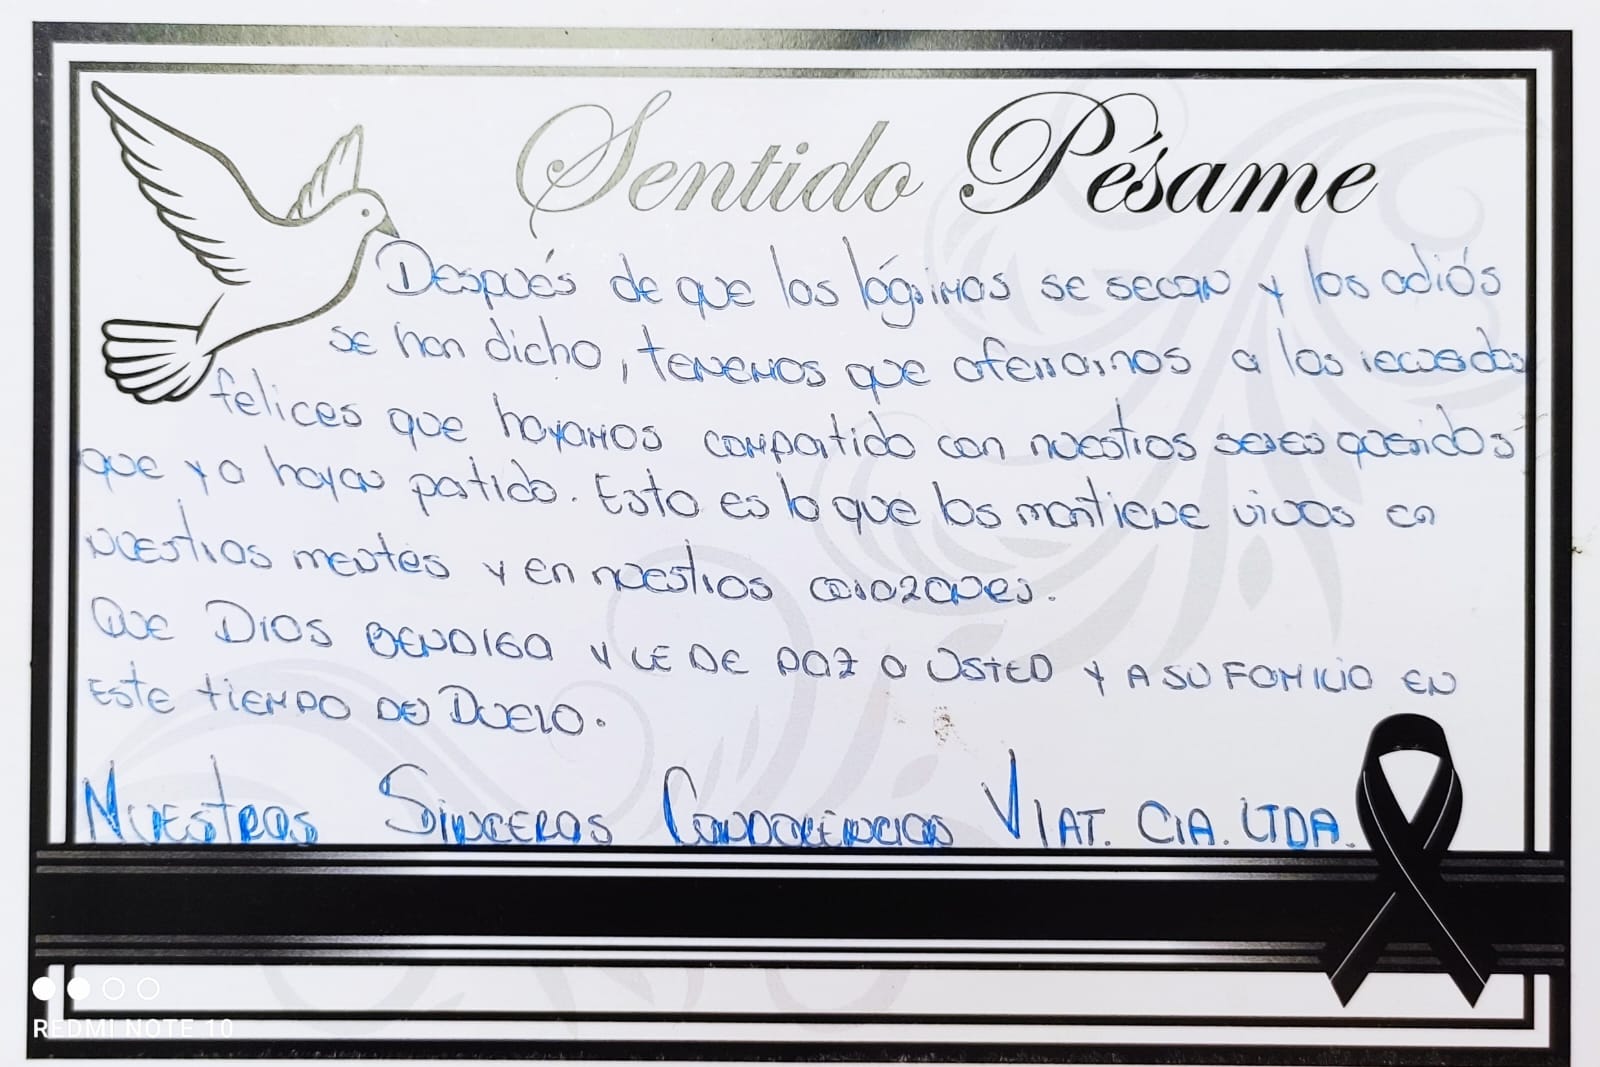 Sentido Pésame
Después de que las lágrimas se secan y los adiós
se han dicho, tenemos que aferrarnos a los recuerdos
felices que hayamos compartido con nuestros seres queridos
que ya hayan partido. Esto es lo que los mantiene vivos en
nuestras mentes y en nuestros corazones.
Que Dios BENDIGA y LE DE PAZ a USTED y A SU FAMILIA EN
ESTE TIEMPO DE DUELO.
NUESTRAS SINCERAS CONDOLENCIAS VIAT. CIA. LTDA.
REDMI NOTE 10